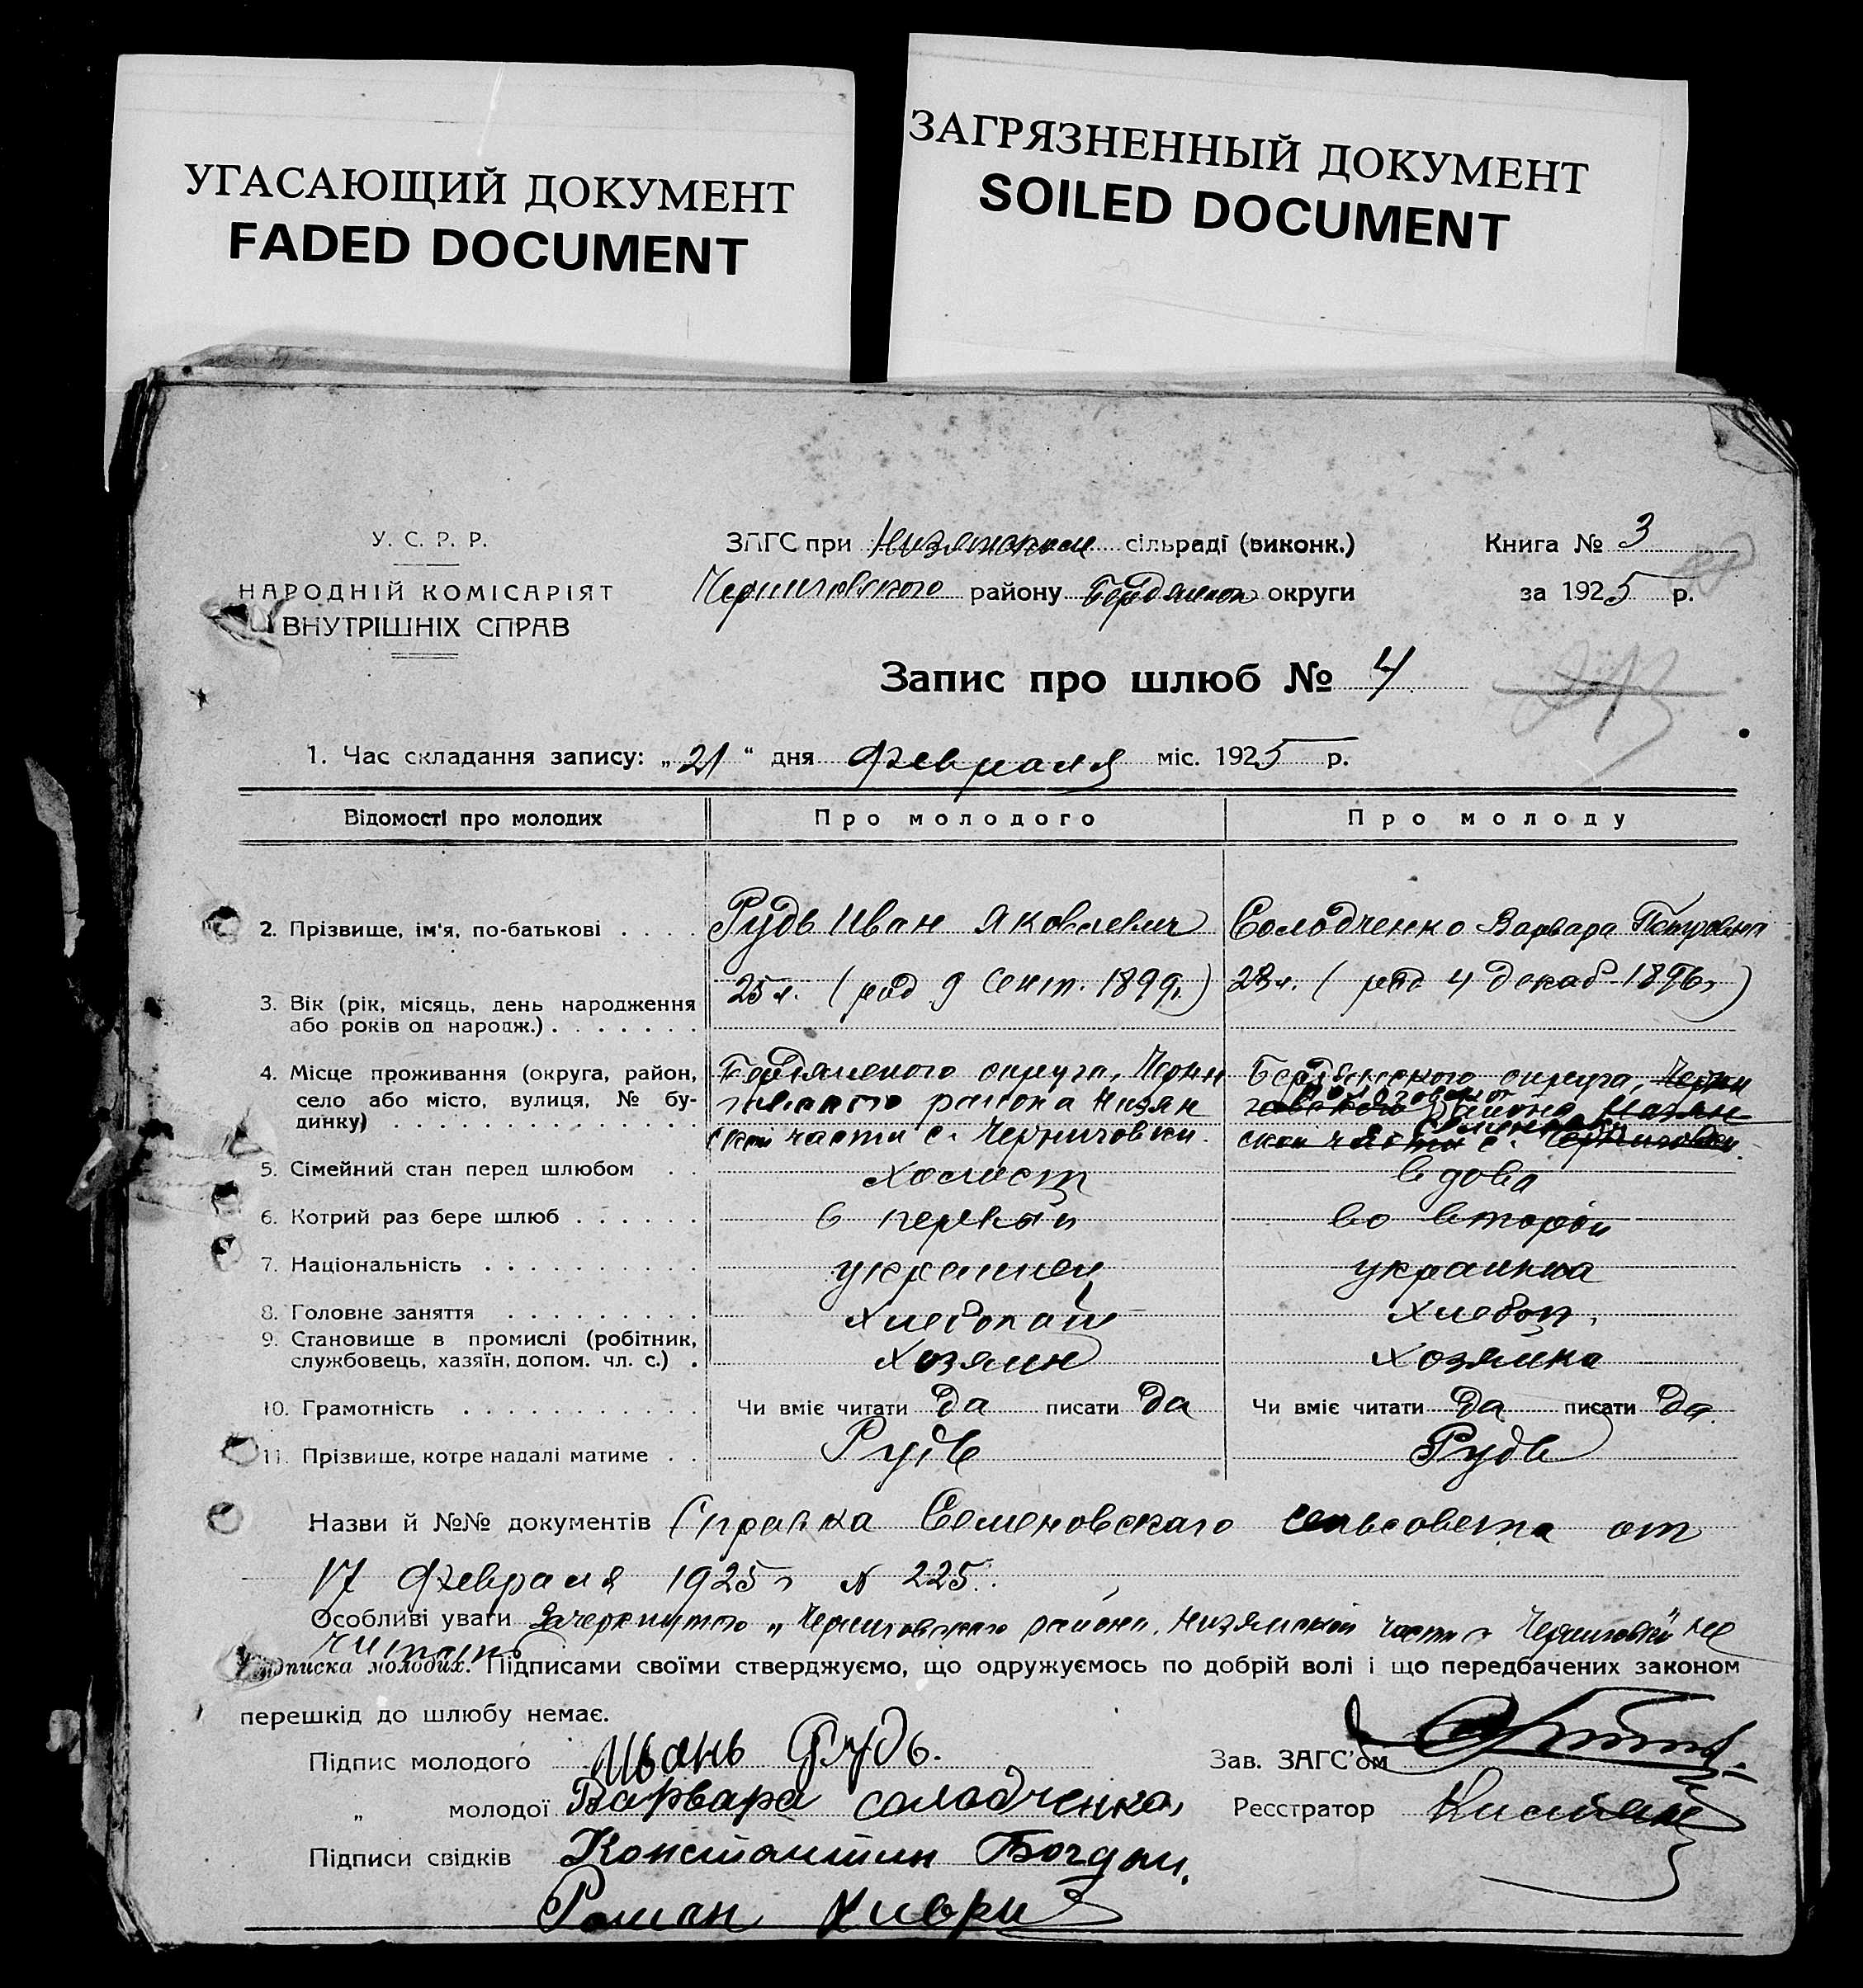 УГАСАЮЩИЙ ДОКУМЕНТ
FADED DOCUMENT
ЗАГРЯЗНЕННЫЙ ДОКУМЕНТ
SOILED DOCUMENT
У. С. Р. Р.
НАРОДНІЙ КОМІСАРІЯТ
ВНУТРІШНІХ СПРАВ
ЗАГС при Низянском сільраді (виконк.)
Черниговского району Бердянской округи
Книга № 3
за 1925 р.
Запис про шлюб № 4
1. Час складання запису: „21“ дня февраля міс. 1925 р.
Відомості про молодих Про молодого Про молоду
2. Прізвище, ім'я, по-батькові Рудь Иван Яковлевич Солодченко Варвара Петровна
3. Вік (рік, місяць, день народження або років од народж.) 25 л. (род 9 Сент. 1899 г.) 28 л. (род 4 декаб. 1896 г)
4. Місце проживання (округа, район, Бердянского округа, Черни Бердянского округа, Черни
село або місто, вулиця, № бу- говского района Низян говского района Низян
динку) ской части с. Черниговки. ской части с. Черниговки.
Семеновки
5. Сімейний стан перед шлюбом холост вдова
6. Котрий раз бере шлюб в первый во второй
7. Національність украинец украинка
8. Головне заняття хлебопаш хлебоп.
9. Становище в промислі (робітник, службовець, хазяїн, допом. чл. с.) хозяин хозяйка
10. Грамотність Чи вміє читати да писати да Чи вміє читати да писати да.
11. Прізвище, котре надалі матиме Рудь Рудь
Назви й №№ документів Справка Семеновскаго сельсовета от
17 февраля 1925 г № 225.
Особливі уваги Зачеркнутого „Черниговского района, Низянской части с Черниговки" не
читать
Підписка молодих. Підписами своїми стверджуємо, що одружуємось по добрій волі і що передбачених законом
перешкід до шлюбу немає.
Підпис молодого Иванъ Рудь.
Зав. ЗАГС'ом
„ молодої Варвара солодченко
Реєстратор
Підписи свідків Константин Богдан.
Роман